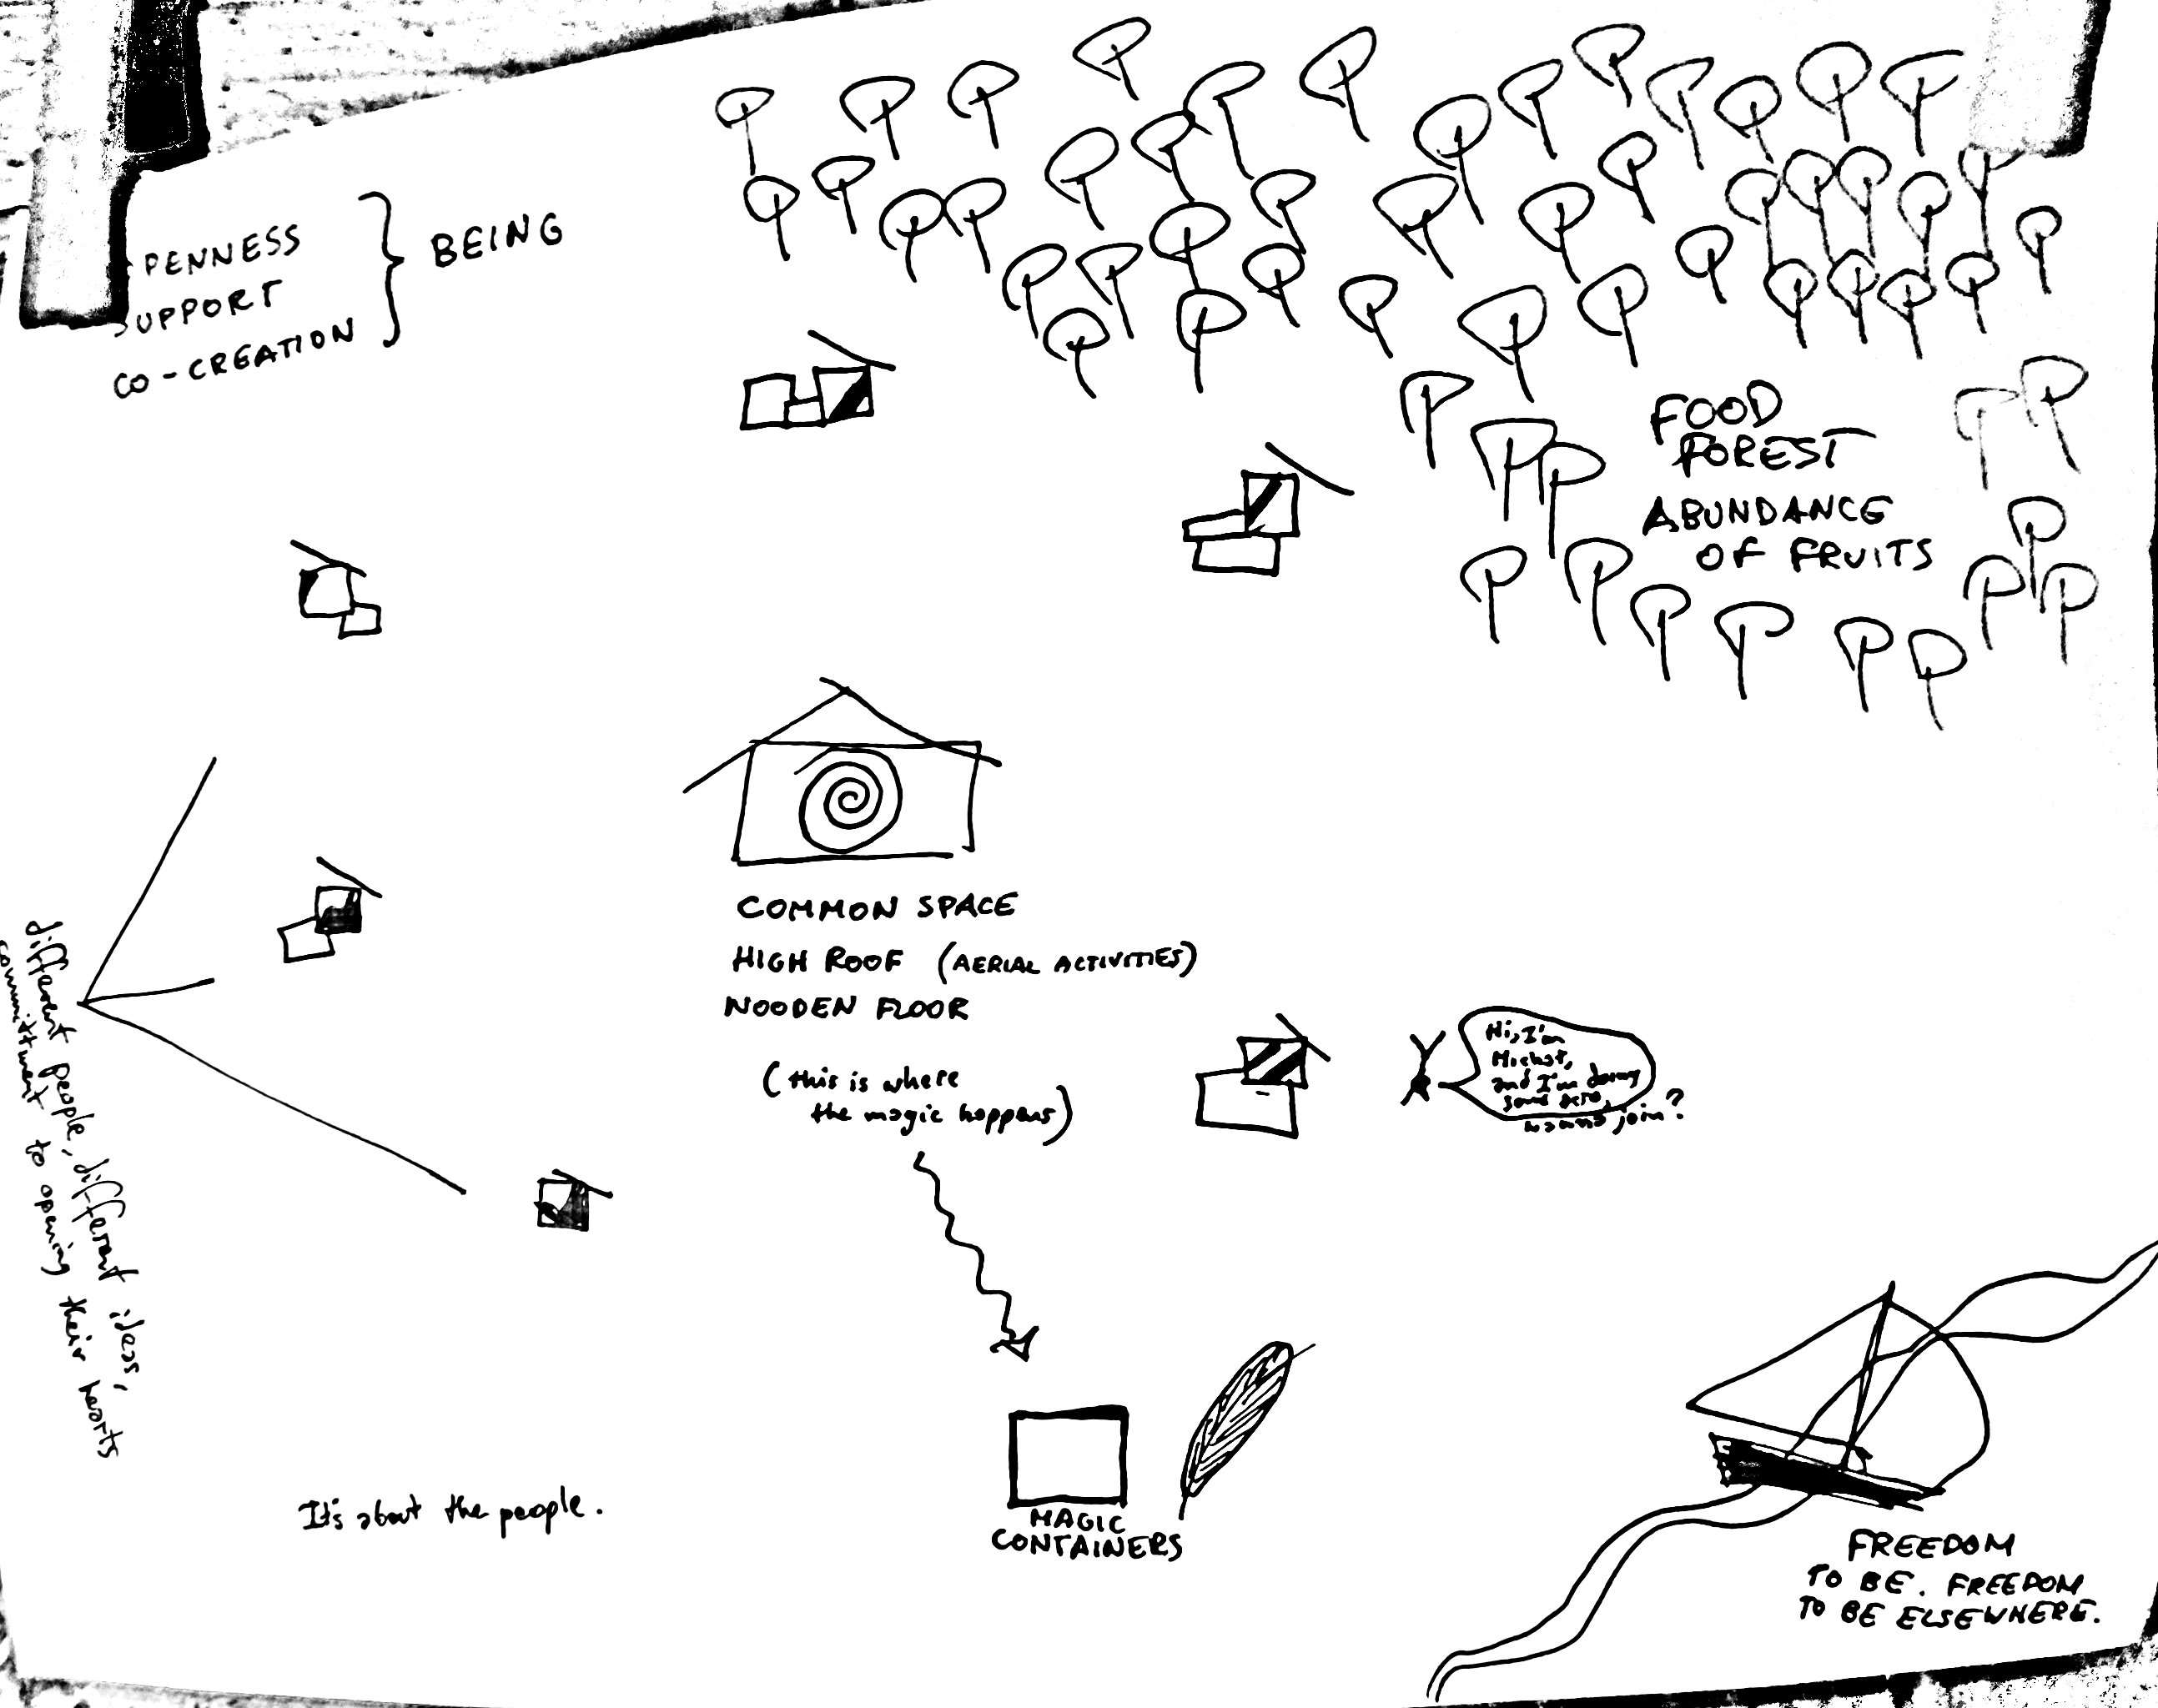 PENNESS
SUPPORT
CO-CREATION
BEING
FOOD
FOREST
ABUNDANCE
OF FRUITS
COMMON SPACE
HIGH ROOF (AERIAL ACTIVITIES)
WOODEN FLOOR
(this is where
the magic happens)
Hi, I'm
and I'm doing
some acro,
wanna join?
different people, different ideas,
commitment to opening their hearts
It's about the people.
MAGIC
CONTAINERS
FREEDOM
TO BE. FREEDOM
TO BE ELSEWHERE.